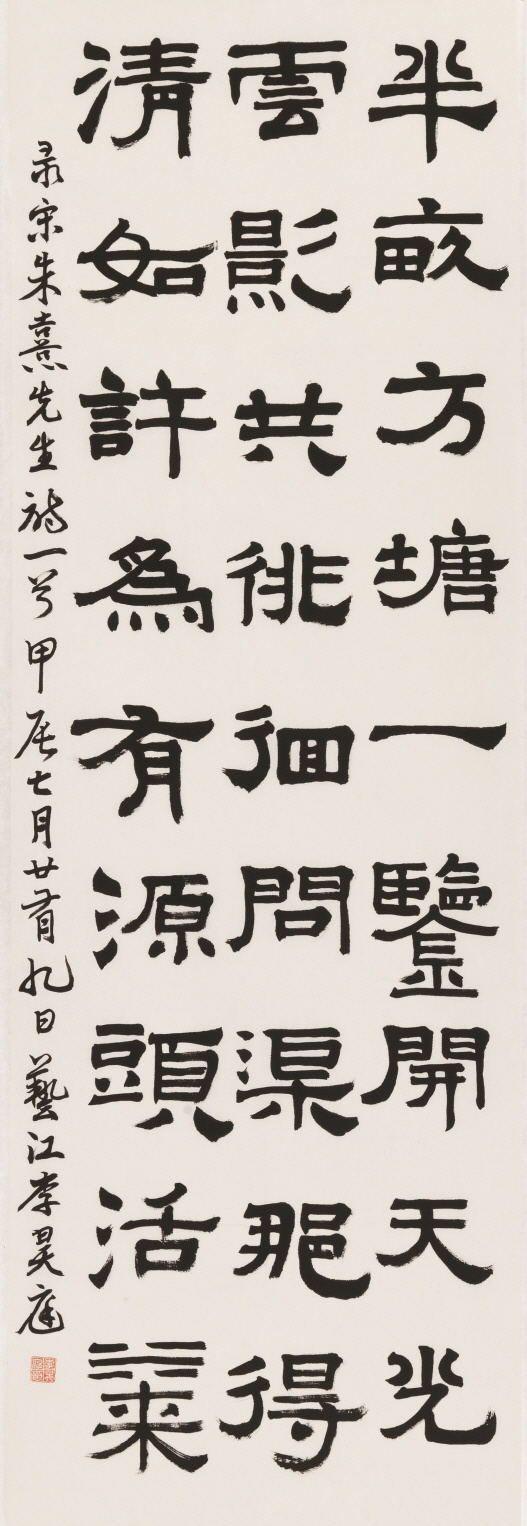 半畝方塘一鑒開天光
雲影共徘徊問渠那得
清如許爲有源頭活萊
录宋朱熹先生詩一首甲辰七月廿有九日藝江李昊庭